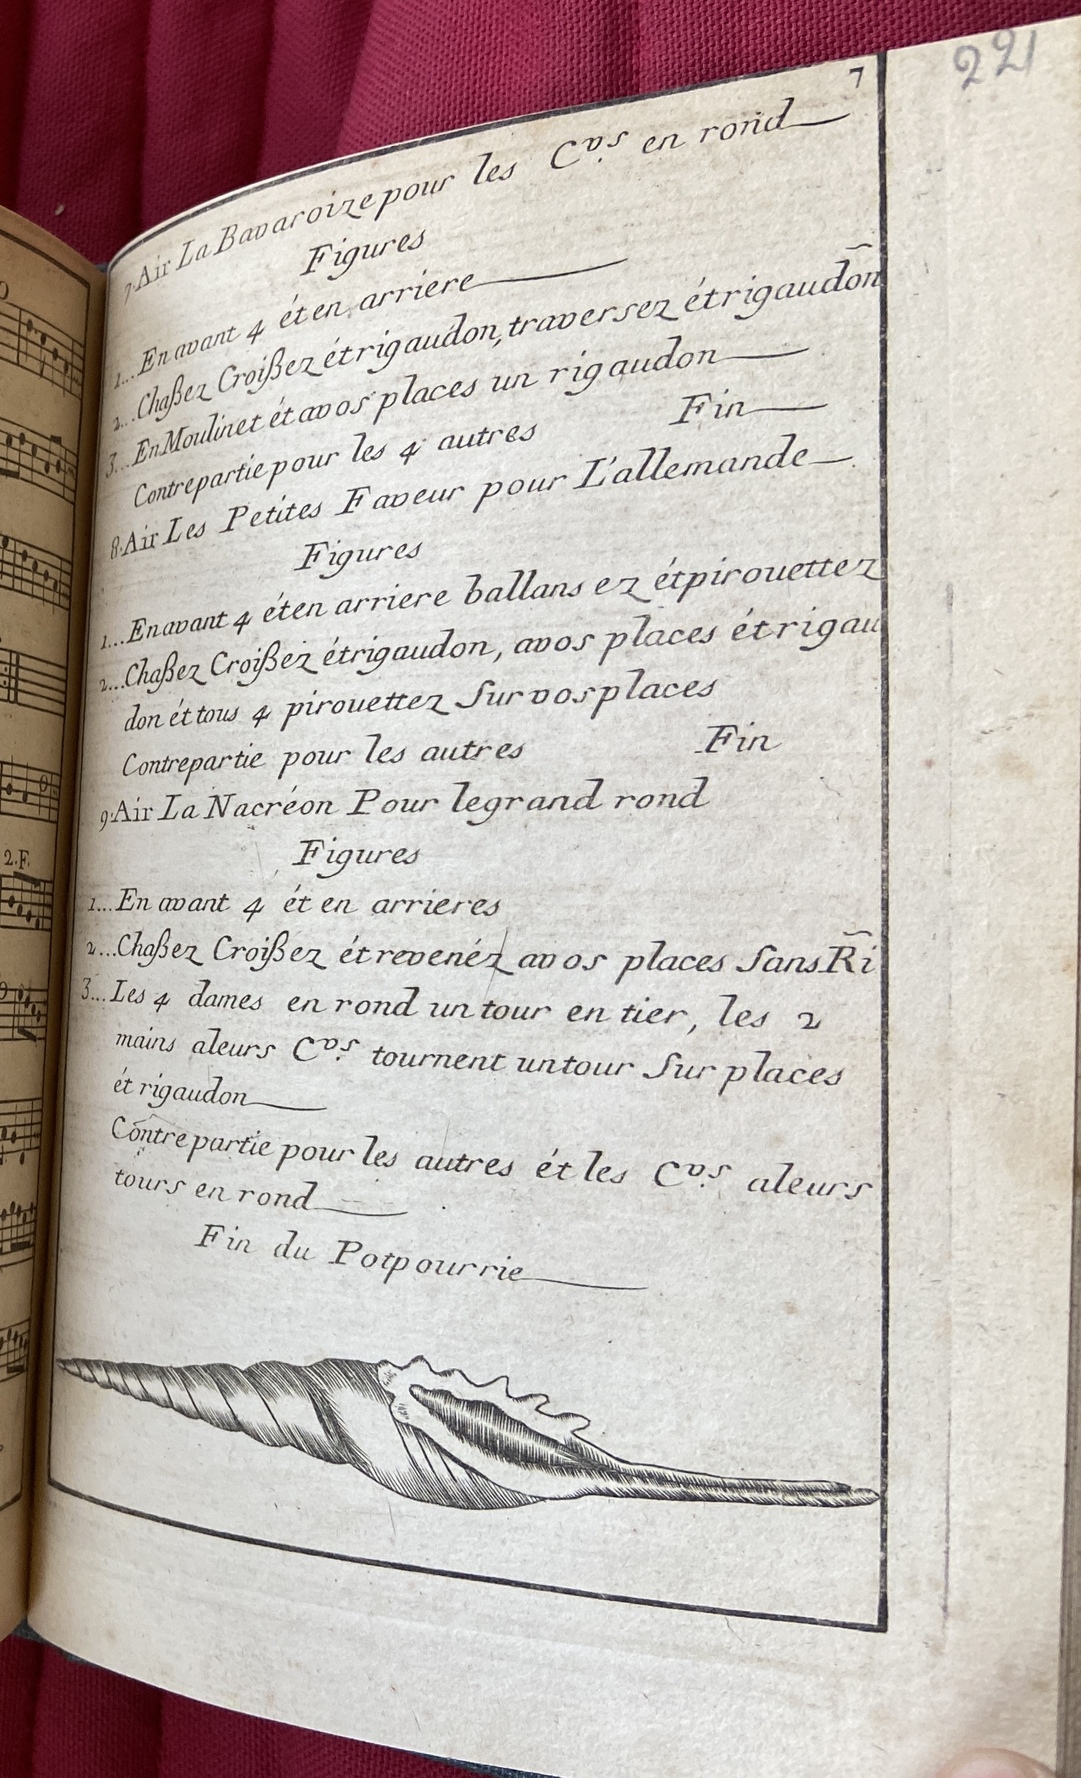 221
7
7. Air La Bavaroize pour les C.vs en rond
Figures
1... En avant 4 ét en arriere
2... Chaßez Croißez ét rigaudon, traversez ét rigaudon̄
3... En Moulinet ét avos places un rigaudon
Contrepartie pour les 4 autres Fin
8. Air Les Petites Faveur pour L'allemande
Figures
1... En avant 4 ét en arriere ballans ez ét pirouettez
2... Chaßez Croißez ét rigaudon, avos places ét rigau
don ét tous 4 pirouettez Sur vos places
Contrepartie pour les autres Fin
9. Air La Nacréon Pour le grand rond
Figures
1... En avant 4 ét en arrieres
2... Chaßez Croißez ét revenéz avos places Sans R̄i
3... Les 4 dames en rond un tour en tier, les 2
mains aleurs C.vs tournent un tour Sur places
ét rigaudon
Contre partie pour les autres ét les C.vs aleurs
tours en rond
Fin du Potpourrie
2.F.